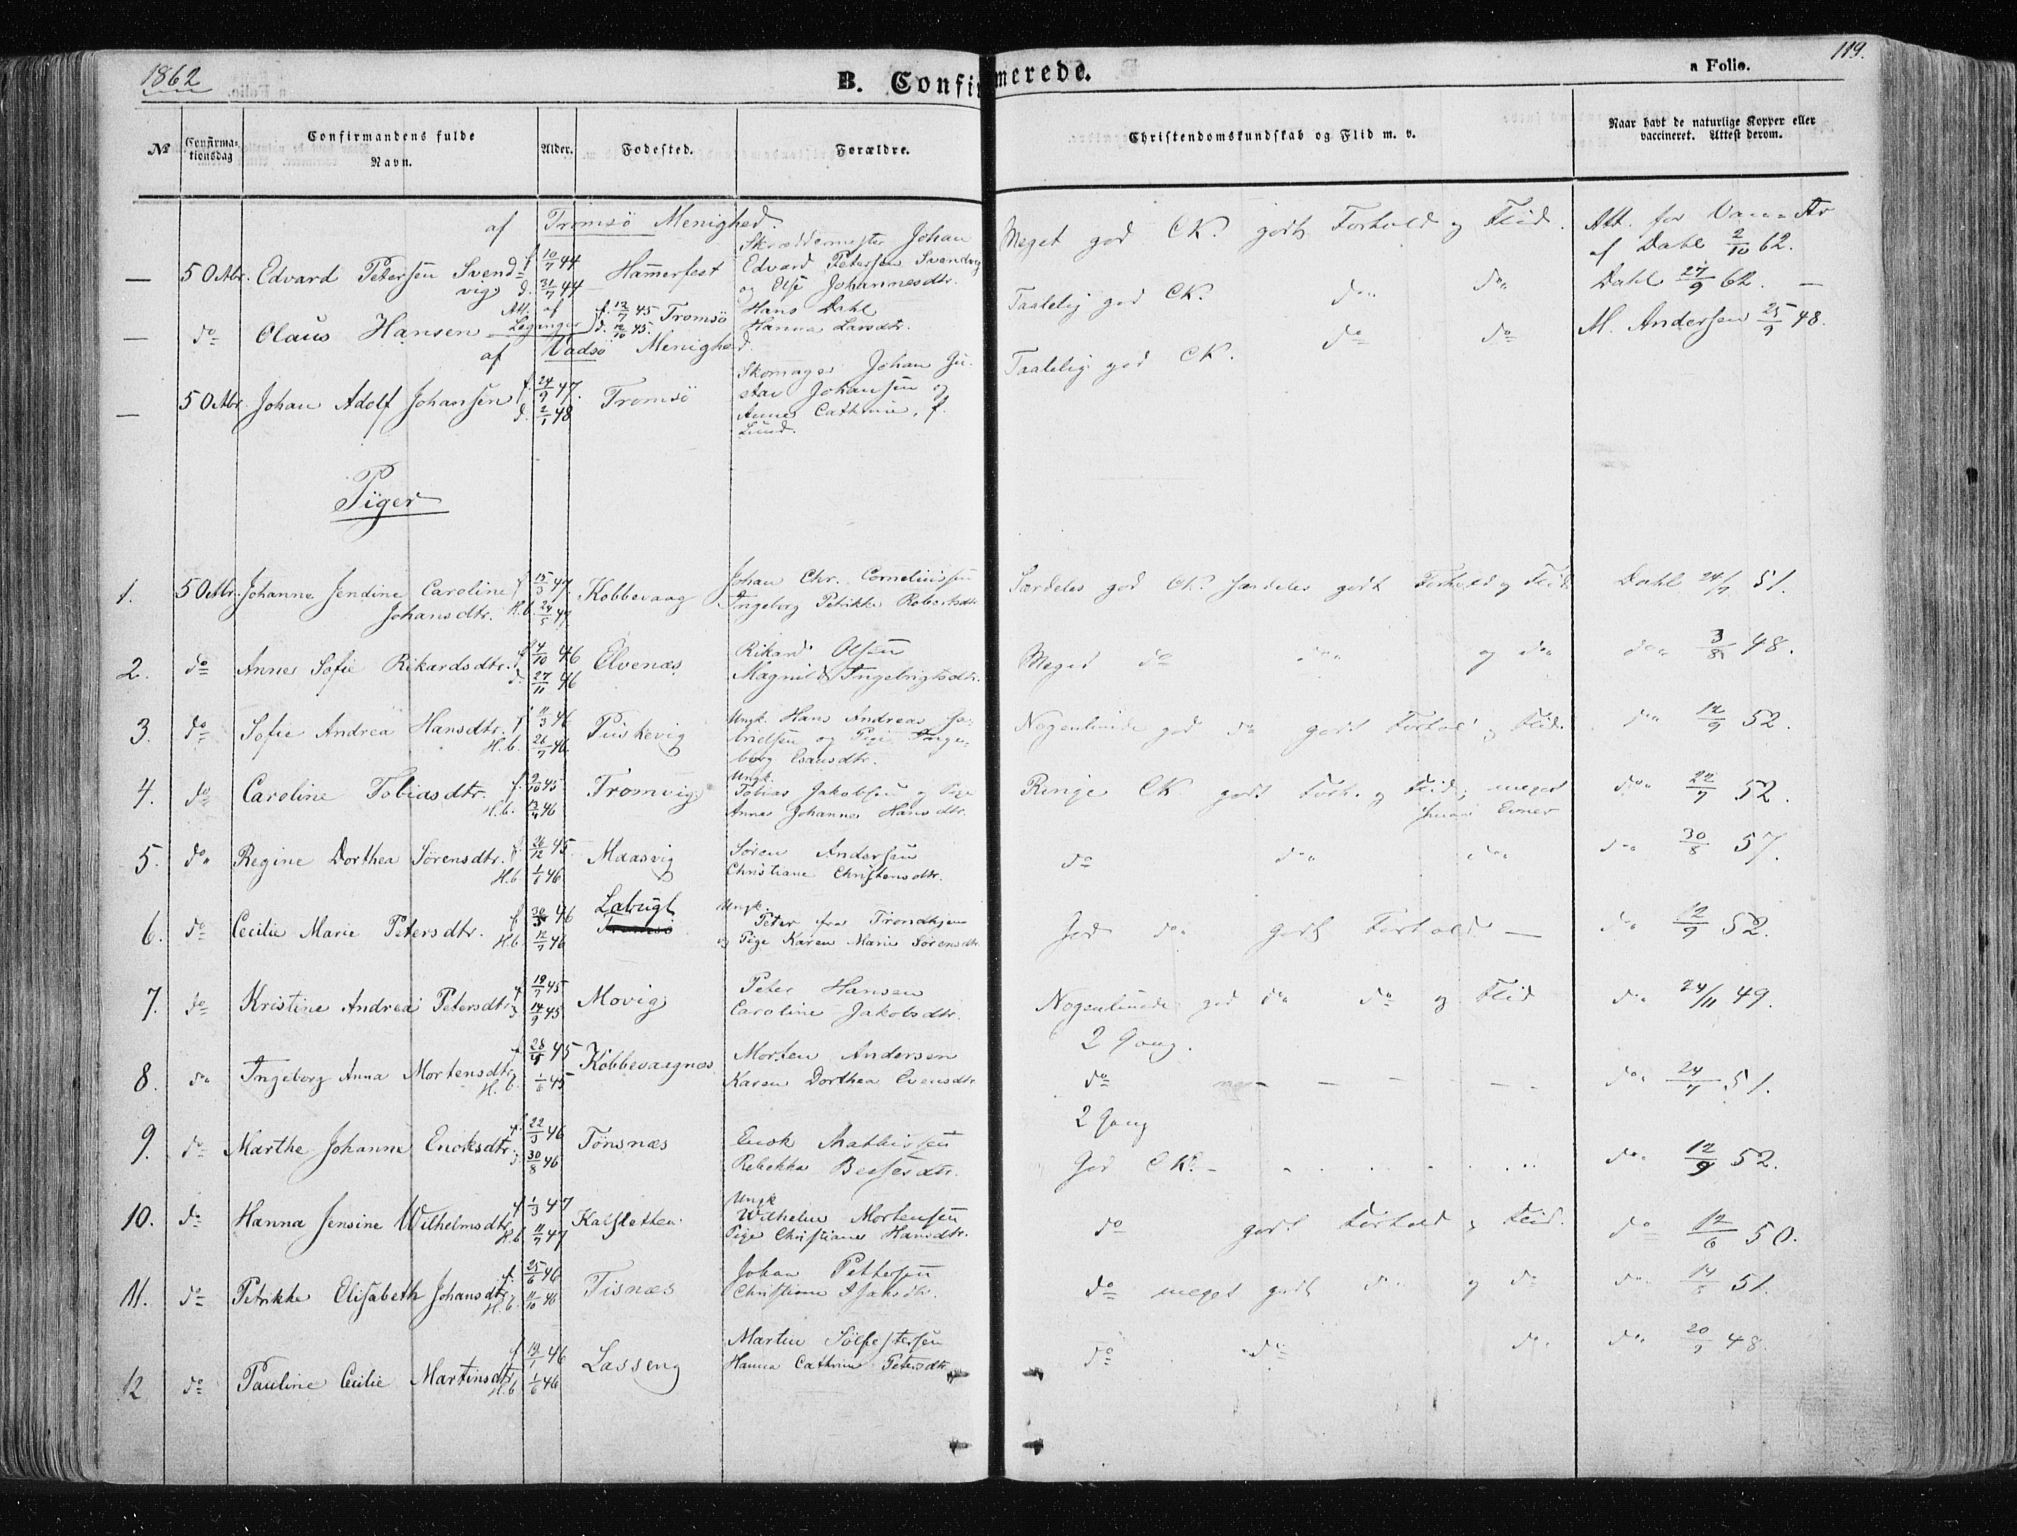 1862
B. Confirmerede.
a Folio.
119.
№
Confirmationsdag
Confirmandens fulde Navn.
Alder.
Fødested.
Forældre.
Christendomskundskab og Flid m. v.
Naar havt de naturlige Kopper eller vaccineret. Attest derom.
af Tromsö Menighed.
— 5 Octbr. Edvard Petersen Svendvig f. 10/7 44 d. 31/7 44 Hamerfest Skræddermester Johan Edvard Petersen Svendvig og Else Johannesdtr. Meget god CK. godt Forhold og Flid. Att. for Dahl 2/10 62.
— do Olaus Hansen Att. af f. 12/7 45 d. 12/10 45. Tromsö Hans Dahl Hanna Larsdtr. Taalelig god CK. do do Dahl 27/9 62. —
af Vadsö Menighed.
— 5 Octbr. Johan Adolf Johansen f. 24/9 47. d. 2/1 48 Tromsö Skomager Johan Gustav Johansen og Anne Cathrine, f. Lund. Taalelig god CK. do do M. Andersen 25/9 48.
Piger
1. 5 Octbr. Johanne Jendine Caroline Johansdtr. f. 15/3 47. H.b. 24/5 47 Kobbevaag Johan Chr. Corneliussen Ingeborg Petrikke Robertsdtr. Særdeles god CK. særdeles godt Forhold og Flid Dahl 24/7 51.
2. do Anne Sofie Rikardsdtr. f. 4/10 46 d. 27/11 46 Elvenæs Rikard Olsen Magnild Ingebrigtsdtr. Meget do do og do do 3/8 48.
3. do Sofie Andrea Hansdtr. f. 11/3 46 H.b. 26/7 46. Hans Andreas Gabrielsen og Pige Ingeborg Esausdtr. Nogenlunde god do godt Forhold og Flid. do 12/9 52.
4. do Caroline Tobiasdtr. f. 9/10 45 H.b. 13/4 46 Tromvig Ungk. Tobias Jakobsen og Pige Anne Johanne Hansdtr. Ringe CK godt Forh. og Flid, meget smaa Evner do 22/7 52.
5. do Regine Dorthea Sörensdtr. f. 26/12 45. H.b 1/6 46 Maasvig Sören Andersen Christiane Christensdtr. do do do do 30/8 57.
6. do Cecilie Marie Petersdtr. f. 30/3 46 H.b. 12/7 46 Ungk. Peter fra Trondhjem og Pige Karen Marie Sörensdtr. God do godt Forhold — do 12/9 52.
7. do Kristine Andrea Petersdtr. f. 19/7 45 d. 14/9 45 Movig Peter Hansen Caroline Jakobsdtr. Nogenlunde god do do og Flid do 24/11 49.
2 Gang.
8. do Ingeborg Anna Mortensdtr. H.b. 1/6 45 Kobbevaagnæs Morten Andersen Karen Dorthea Evensdtr. do — — — — — do 24/7 51.
2 Gang
9. do Marthe Johanne Enoksdtr. f. 22/3 46 d. 30/8 46 Tönsnæs Enok Mathissen Rebekka do 12/9 52.
God CK.
10. do Hanna Jensine Wilhelmsdtr. f. 1/3 47 H.b. 11/7 47 Kalsletten Ungk Wilhelm Mortensen Pige Christiane Hansdtr. do godt Forhold og Flid. do 12/6 50.
11. do Petrikke Elisabeth Johansdtr. f. 25/6 46 H.b. 11/10 46 Tisnæs Johan Pettersen Christiane Isaksdtr. do meget godt do og do do 51.
12 do Pauline Cecilie Martinsdtr. f. 19/1 46 H.b. 1/6 46 Lasseng Martin Hanna Cathrine Petersdtr. do do do. do 48.